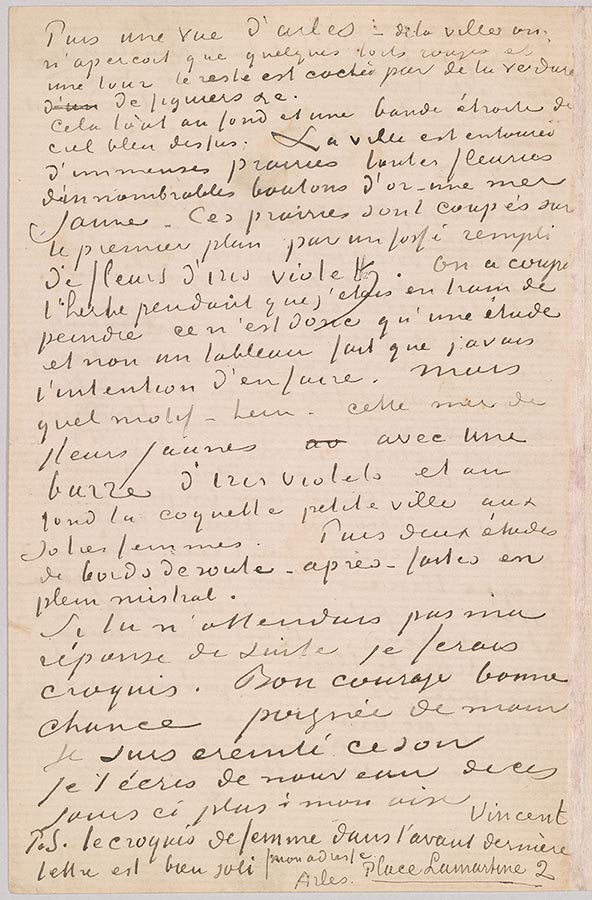 Puis une vue d'arles – de la ville on
n'aperçoit que quelques toits rouges et
une tour le reste est caché par de la verdure
d'un de figuiers &c.
cela tout au fond et une bande étroite de
ciel bleu dessus. La ville est entourée
d'immenses prairies toutes fleuries
d'innombrables boutons d'or – une mer
jaune – Ces prairies sont coupés sur
le premier plan par un fossé rempli
de fleurs d'iris violets. On a coupé
l'herbe pendant que j'étais en train de
peindre ce n'est donc qu'une étude
et non un tableau fait que j'avais
l'intention d'en faire. Mais
quel motif – hein – cette mer de
fleurs jaunes avec une
barre d'iris violets et au
fond la coquette petite ville aux
jolies femmes. Puis deux études
de bords de route – après – faites en
plein mistral.
Si tu n'attendais pas ma
réponse de suite je ferais
croquis. Bon courage bonne
chance poignée de main
Je suis ereinté ce soir
Je t'écris de nouveau de ces
jours ci plus à mon aise
Vincent
P.S. le croquis de femme dans l'avant dernière
lettre est bien joli mon adresse
Arles. Place Lamartine 2